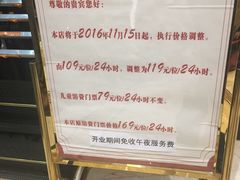 尊敬的贵宾您好:
本店将于2016年11月15日起,执行价格调整。
由109元/位/24小时,调整为119元/位/24小时。
儿童浴资门票79元/位/24小时不变。
本店原浴资门票价格169元/位/24小时.
开业期间免收午夜服务费